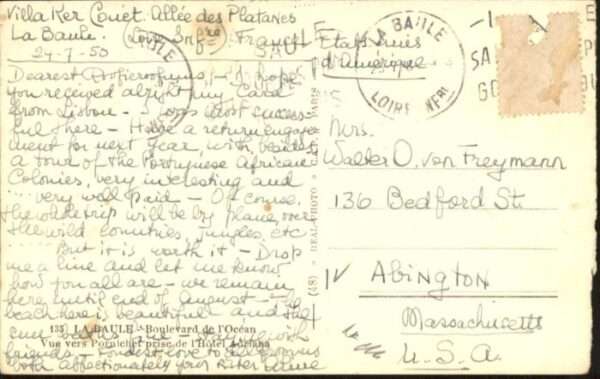 Villa Ker Couët. Allée des Platanes
La Baule. Loire Infre. France
24-7-50
Dearest I hope
you received alright my card
from Lisbon - I was most success-
ful there - Have a return engage-
ment for next year, with, besides
a tour of the Portuguese African
Colonies, very interesting and
very well paid - Of course,
the whole trip will be by plane, over
the wild countries, jungles, etc
But it is worth it - Drop
me a line and let me know
how you all are - we remain
here until end of August - The
beach here is beautiful and the
friends - Fondest love to
both affectionately your
Etats Unis
d'Amérique
LA BAULE
LOIRE INFRE
Mrs.
Walter O. von Freymann
136 Bedford St.
Abington
Massachusetts
U.S.A.
(48) - REAL-PHOTO
135 LA BAULE - Boulevard de l'Océan
Vue vers Pornichet prise de l'Hôtel Adriana